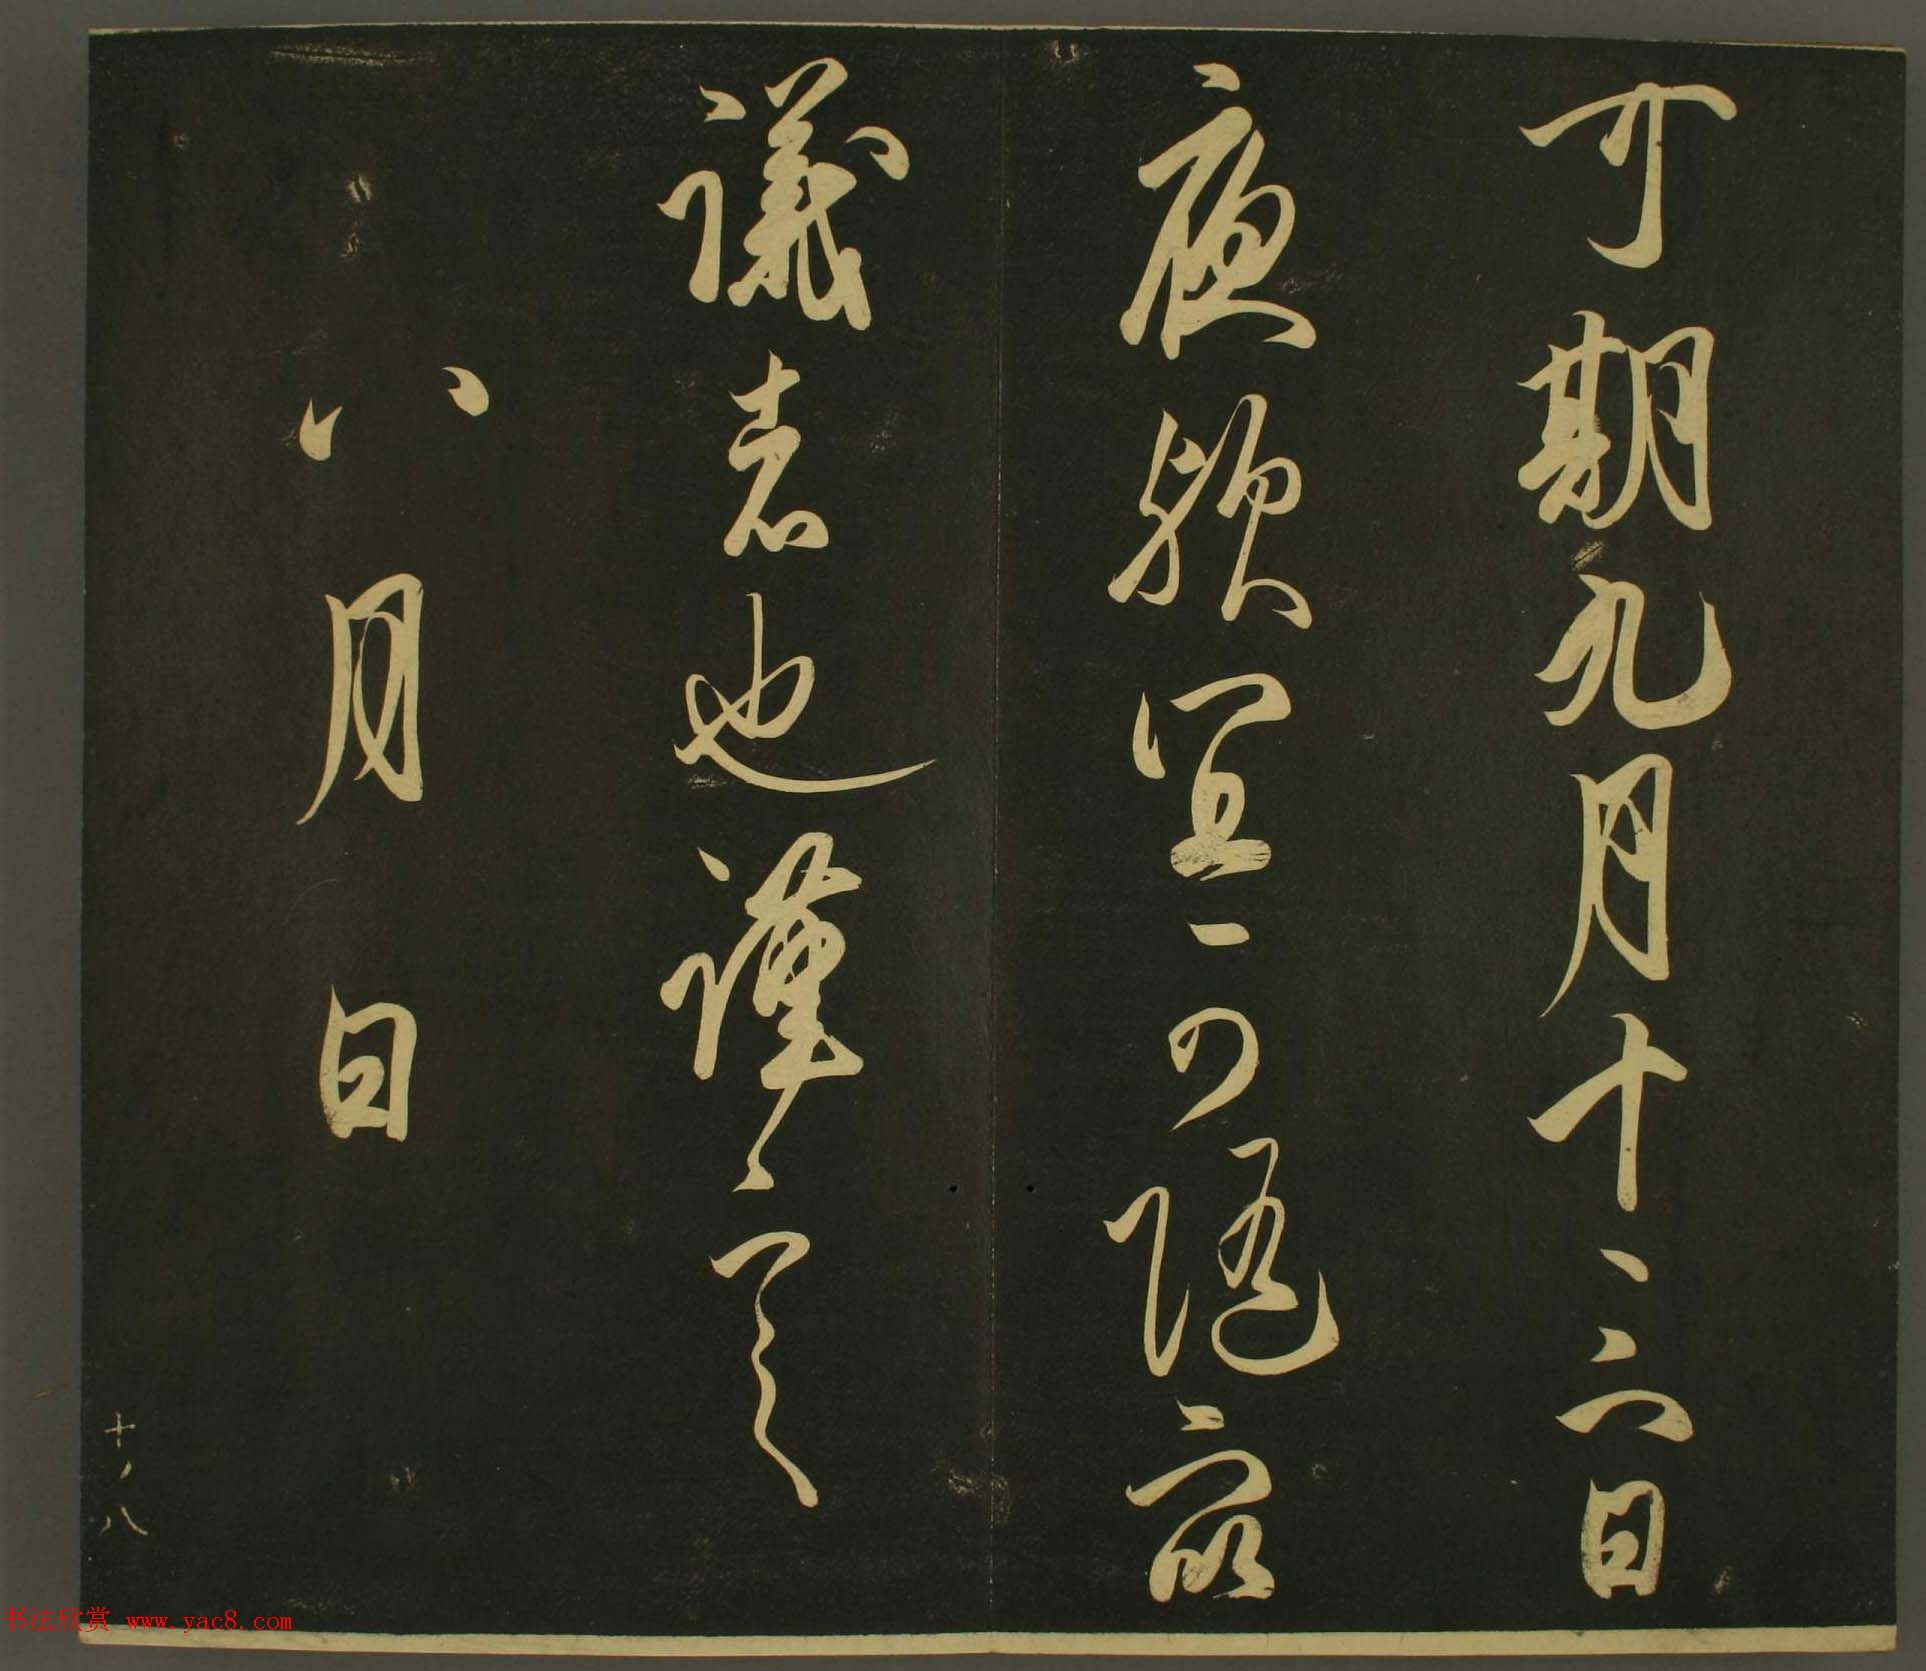 可期九月十六日
夜歟宜可随衆
議者也謹言
八月日
十ノ八
书法欣赏 www.yac8.com